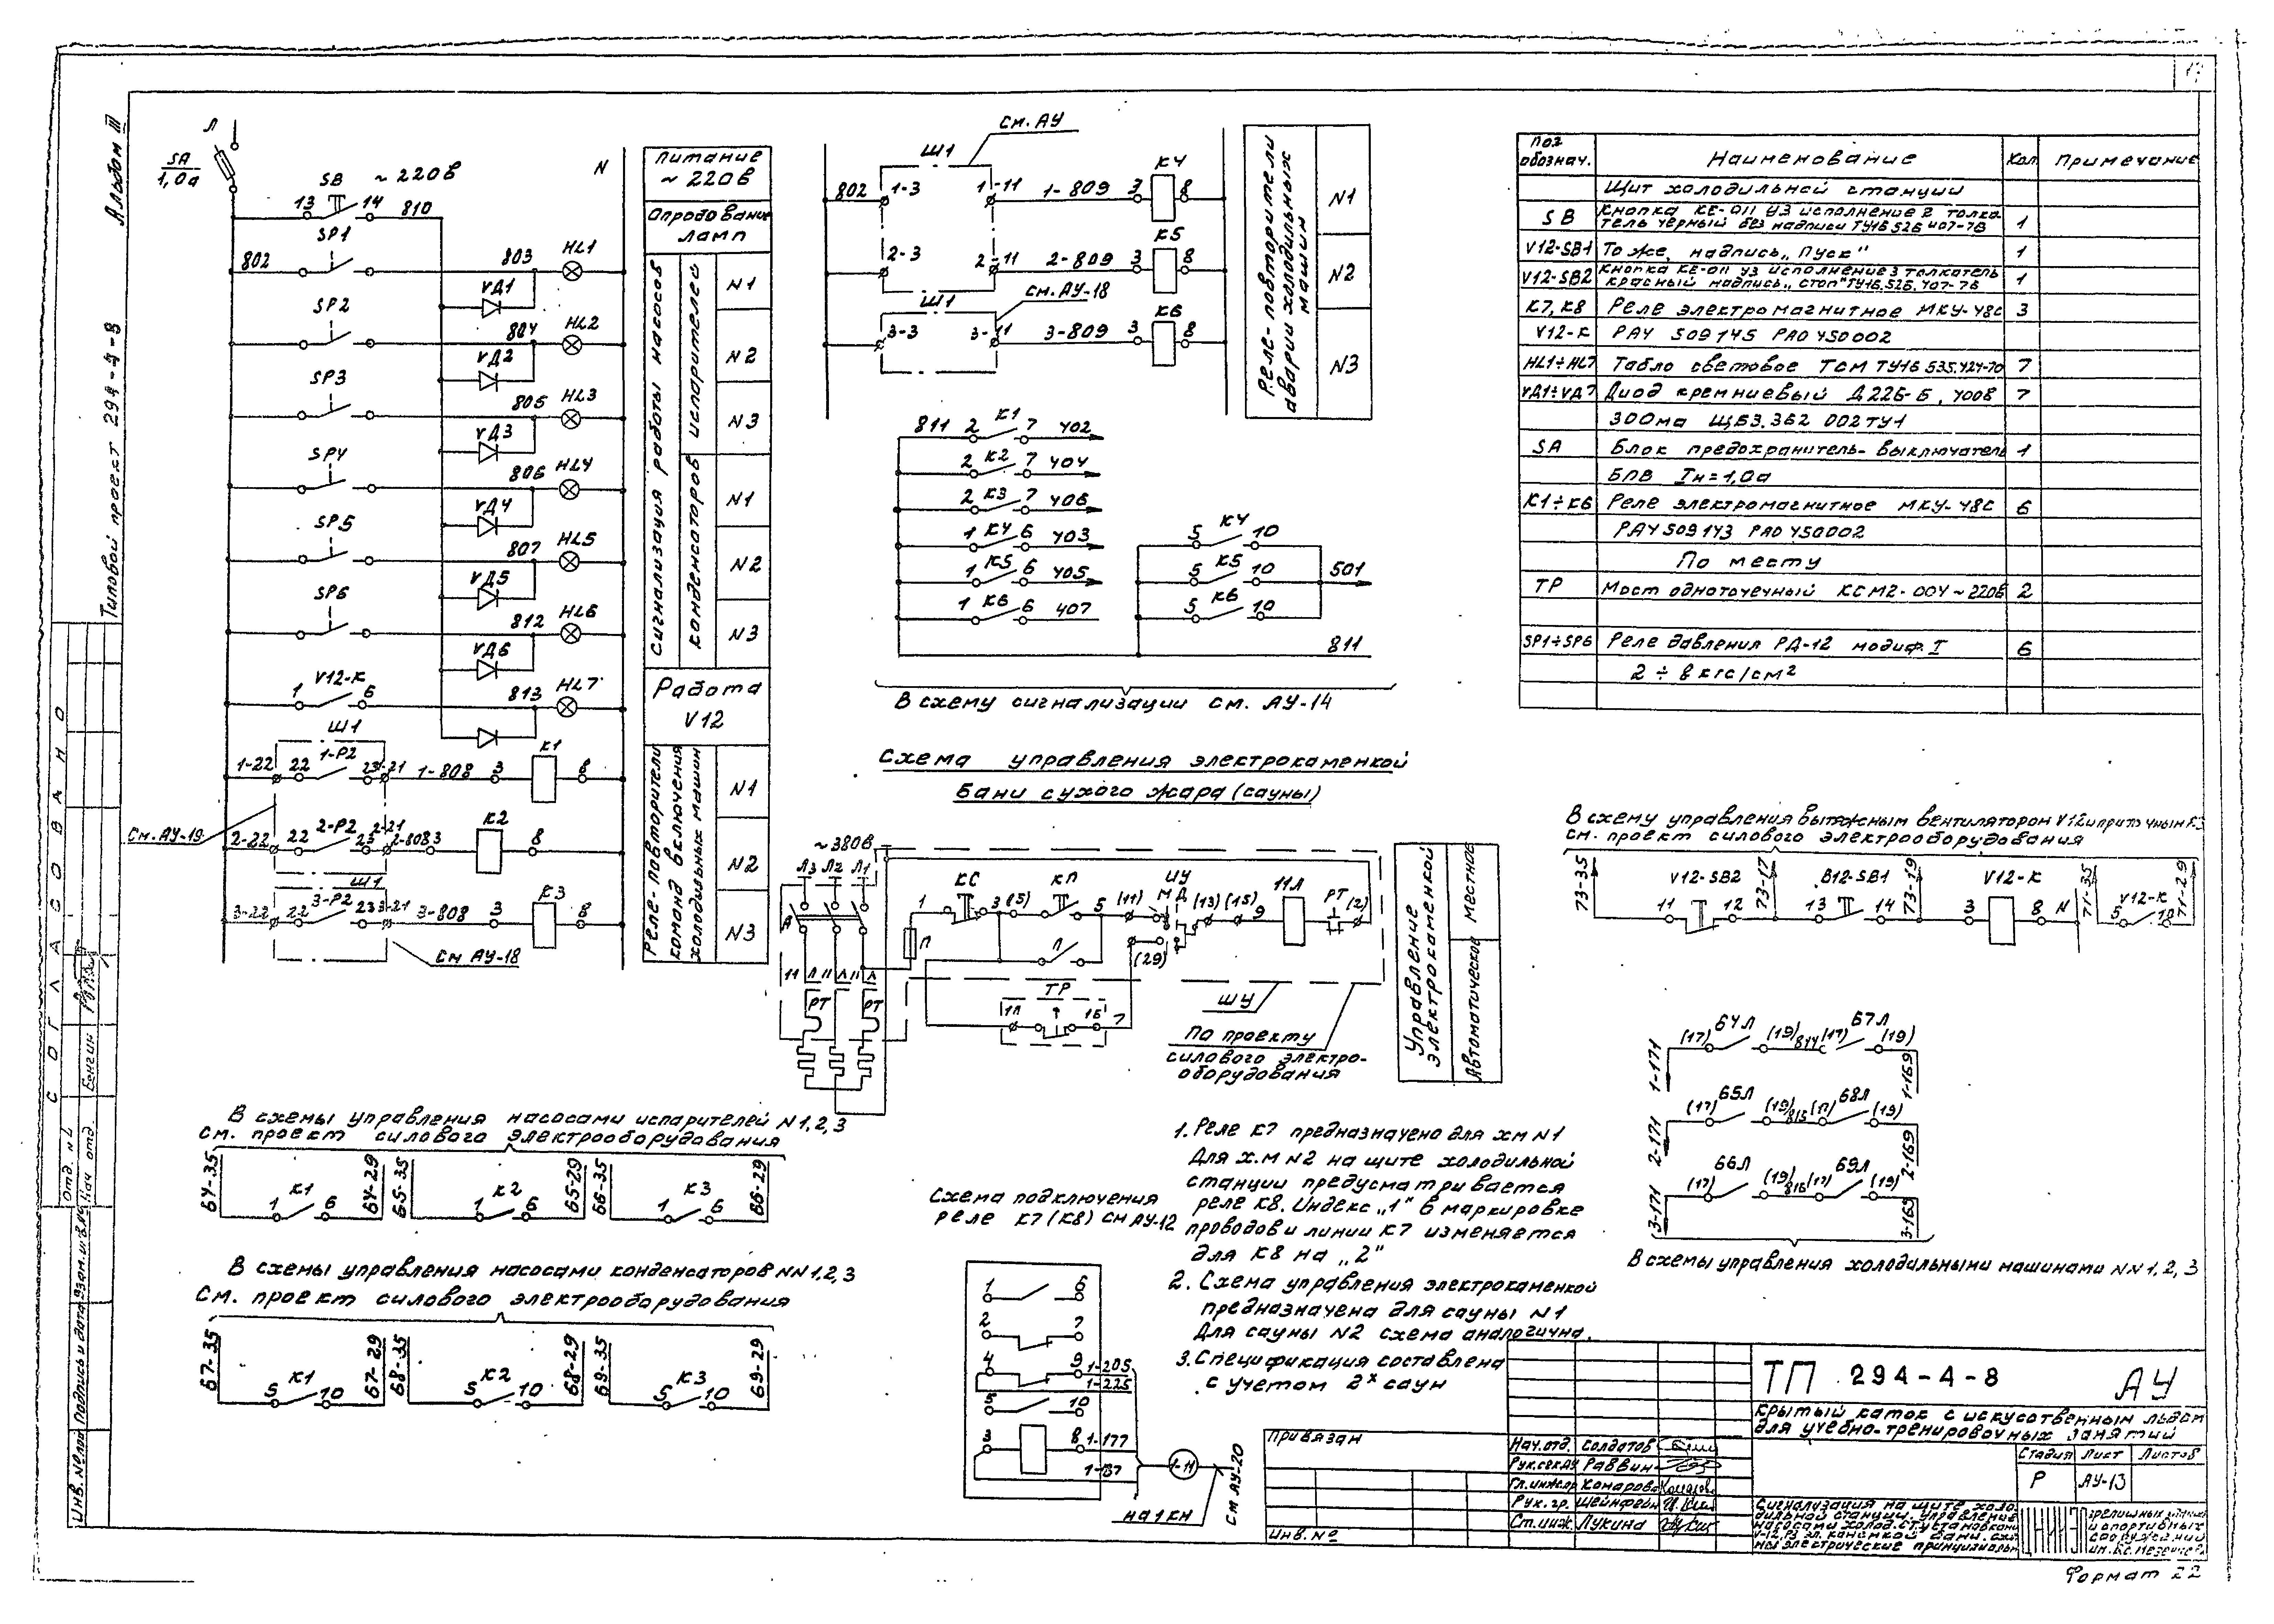 Альбом III
Типовой проект 294-4-8
СОГЛАСОВАНО
Л
SA
1,0а
SB ~220в N
13 14 810
SP1
802 803 HL1
VД1
SP2
804 HL2
VД2
SP3
805 HL3
VД3
SP4
806 HL4
VД4
SP5
807 HL5
VД5
SP6
812 HL6
VД6
V12-К
1 6 813 HL7
Ш1
1-Р2 К1
1-22 22 23 1-21 1-808 3 8
2-Р2 К2
См. АУ-19
2-22 22 23 2-21 2-808 3 8
Ш1
3-Р2 К3
3-22 22 23 3-21 3-808 3 8
См АУ-18
Питание
~220в
Опробование
ламп
Сигнализация работы насосов
испарителей
N1
N2
N3
конденсаторов
N1
N2
N3
Работа
V12
Реле-повторители
команд включения
холодильных машин
N1
N2
N3
См. АУ
Ш1 К4
802 1-3 1-11 1-809 3 8
К5
2-3 2-11 2-809 3 8
Ш1 см. АУ-18 К6
3-3 3-11 3-809 3 8
Реле-повторители
аварии холодильных
машин
N1
N2
N3
811 2 К1 7 402
2 К2 7 404
2 К3 7 406
1 К4 6 403
1 К5 6 405
1 К6 6 407
5 К4 10
5 К5 10 501
5 К6 10
811
В схему сигнализации см. АУ-14
Схема управления электрокаменкой
Бани сухого жара (сауны)
~380в
Л3 Л2 Л1
А
1 КС 3 (5) КП 5 (11) ИУ
М Д (13) (15) 9 11Л РТ (2)
П Л (29)
11Л 11Л 11Л
РТ РТ
ТР
1Л 1Б 7
ШУ
По проекту
силового электро-
оборудования
Управление
электрокаменкой
Местное
Автоматическое
Поз
обознач. Наименование Кол Примечание
Щит холодильной станции
SB Кнопка КЕ-011 У3 исполнение 2 толка
тель черный без надписи ТУ16.526 407-76 1
V12-SB1 То же, надпись „Пуск" 1
V12-SB2 Кнопка КЕ-011 У3 исполнение 3 толкатель
красный надпись „стоп" ТУ16.526.407-76 1
К7, К8 Реле электромагнитное МКУ-48с 3
V12-К РА4 509 145 РА0 450002
HL1÷HL7 Табло световое ТСМ ТУ16 535.424-70 7
VД1÷VД7 Диод кремниевый Д226-Б, 400в 7
300ма ЩБ3.362 002ТУ1
SA Блок предохранитель-выключатель 1
БПВ Iн=1,0а
К1÷К6 Реле электромагнитное МКУ-48С 6
РА4 509 143 РА0 450002
По месту
ТР Мост одноточечный КСМ2-004 ~220в 2
SP1÷SP6 Реле давления РД-12 модиф. I 6
2÷8 кгс/см²
В схему управления вытяжным вентилятором V12 и приточным
см. проект силового электрооборудования
73-35 V12-SB2 73-17 В12-SB1 73-19 V12-К 71-35 V12-К 71-29
11 12 13 14 3 8 N 5 10
64Л 67Л
1-171 (17) (19) 814 (17) (19) 1-169
65Л 68Л
2-171 (17) (19) 815 (17) (19) 2-169
66Л 69Л
3-171 (17) (19) 816 (17) (19) 3-169
В схемы управления холодильными машинами NN 1, 2, 3
В схемы управления насосами испарителей N1,2,3
См. проект силового электрооборудования
64-35 1 К1 6 64-29 65-35 1 К2 6 65-29 66-35 1 К3 6 66-29
В схемы управления насосами конденсаторов NN 1,2,3
См. проект силового электрооборудования
67-35 5 К1 10 67-29 68-35 5 К2 10 68-29 69-35 5 К3 10 69-29
Схема подключения
реле К7 (К8) см АУ-12
1 6
2 7
4 9 1-205
1-225
5 10
3 8 1-177
1-187
1-Н
на 1 КН
См АУ-20
1. Реле К7 предназначено для хм N1
Для х.м N2 на щите холодильной
станции предусматривается
реле К8. Индекс „1" в маркировке
проводов и линии К7 изменяется
для К8 на „2"
2. Схема управления электрокаменкой
предназначена для сауны N1
Для сауны N2 схема аналогична.
3. Спецификация составлена
с учетом 2х саун
Привязан
Инв. №
Нач.отд. Солдатов
Рук.сек АУ Раввин
Гл.инж.пр Комарова
Рук. гр. Шейнфейн
Ст. инж. Лукина
ТП 294-4-8 АУ
Крытый каток с искусственным льдом
для учебно-тренировочных занятий
Стадия Лист Листов
Р АУ-13
Сигнализация на щите холо-
дильной станции. Управление
зрелищных зданий
и спортивных
сооружений
им. Б.С. Мезенцева
Формат 22